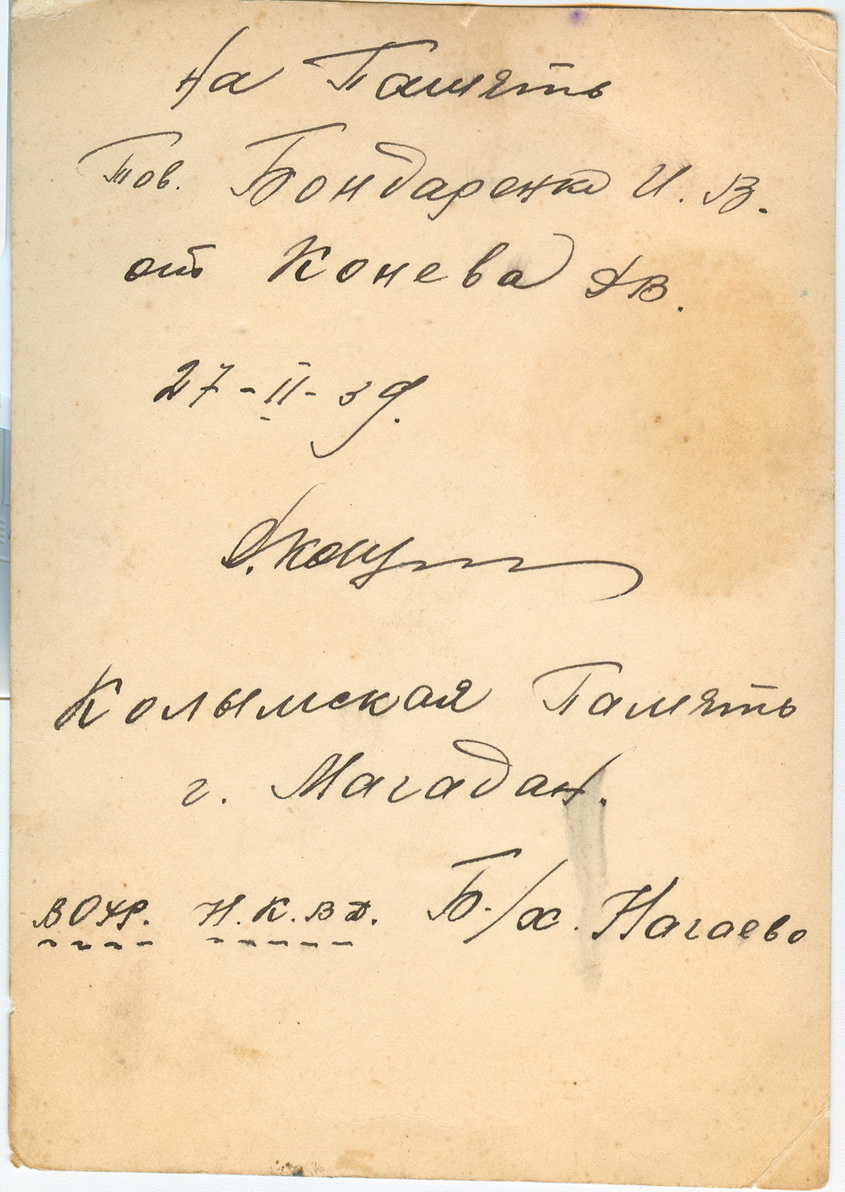 На Память
Тов. Бондаренко И. В.
от Конева Д В.
27-II-39.
Колымская Память
г. Магадан.
ВОХР. Н.К.В Д. Б./х. Нагаево